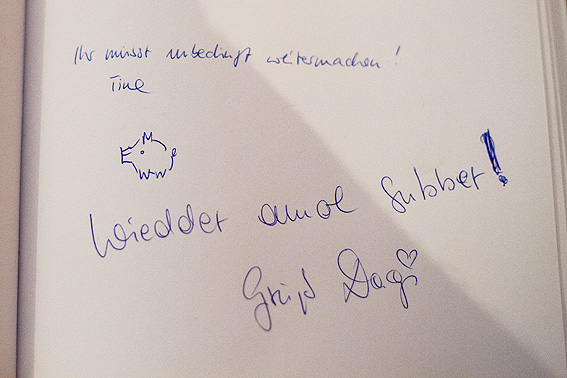 Ihr müsst unbedingt weitermachen!
Tine
wiedder amol subber!
Gruß Dagi